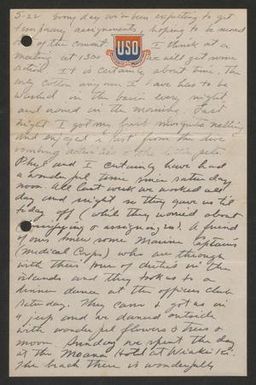 5-22 Every day we've been expecting to get
temporary assignments, hoping to be moved
of the convent I think at a
meeting at 1300 we will get some
USO
action! It is certainly about time. The
only cotton any one I have has to be
washed in the basin every night
and ironed in the morning. Last
night I got my first mosquito netting
and enjoyed
Phyl and I certainly have had
a wonderful time since Saturday
noon. All last week we worked all
day and night so they gave us til
today off (while they worried about
classifying or assigning us). A friend
of ours knew some Marine Captains
(Medical Corps) who are through
with their tour of duties in the
islands and they took us to a
dinner dance at the officers club
Saturday. They came & got us in
a jeep and we danced outside
with wonderful flowers & trees &
moon. Sunday we spent the day
at the Moana Hotel at Waikiki.
The beach there is wonderfully